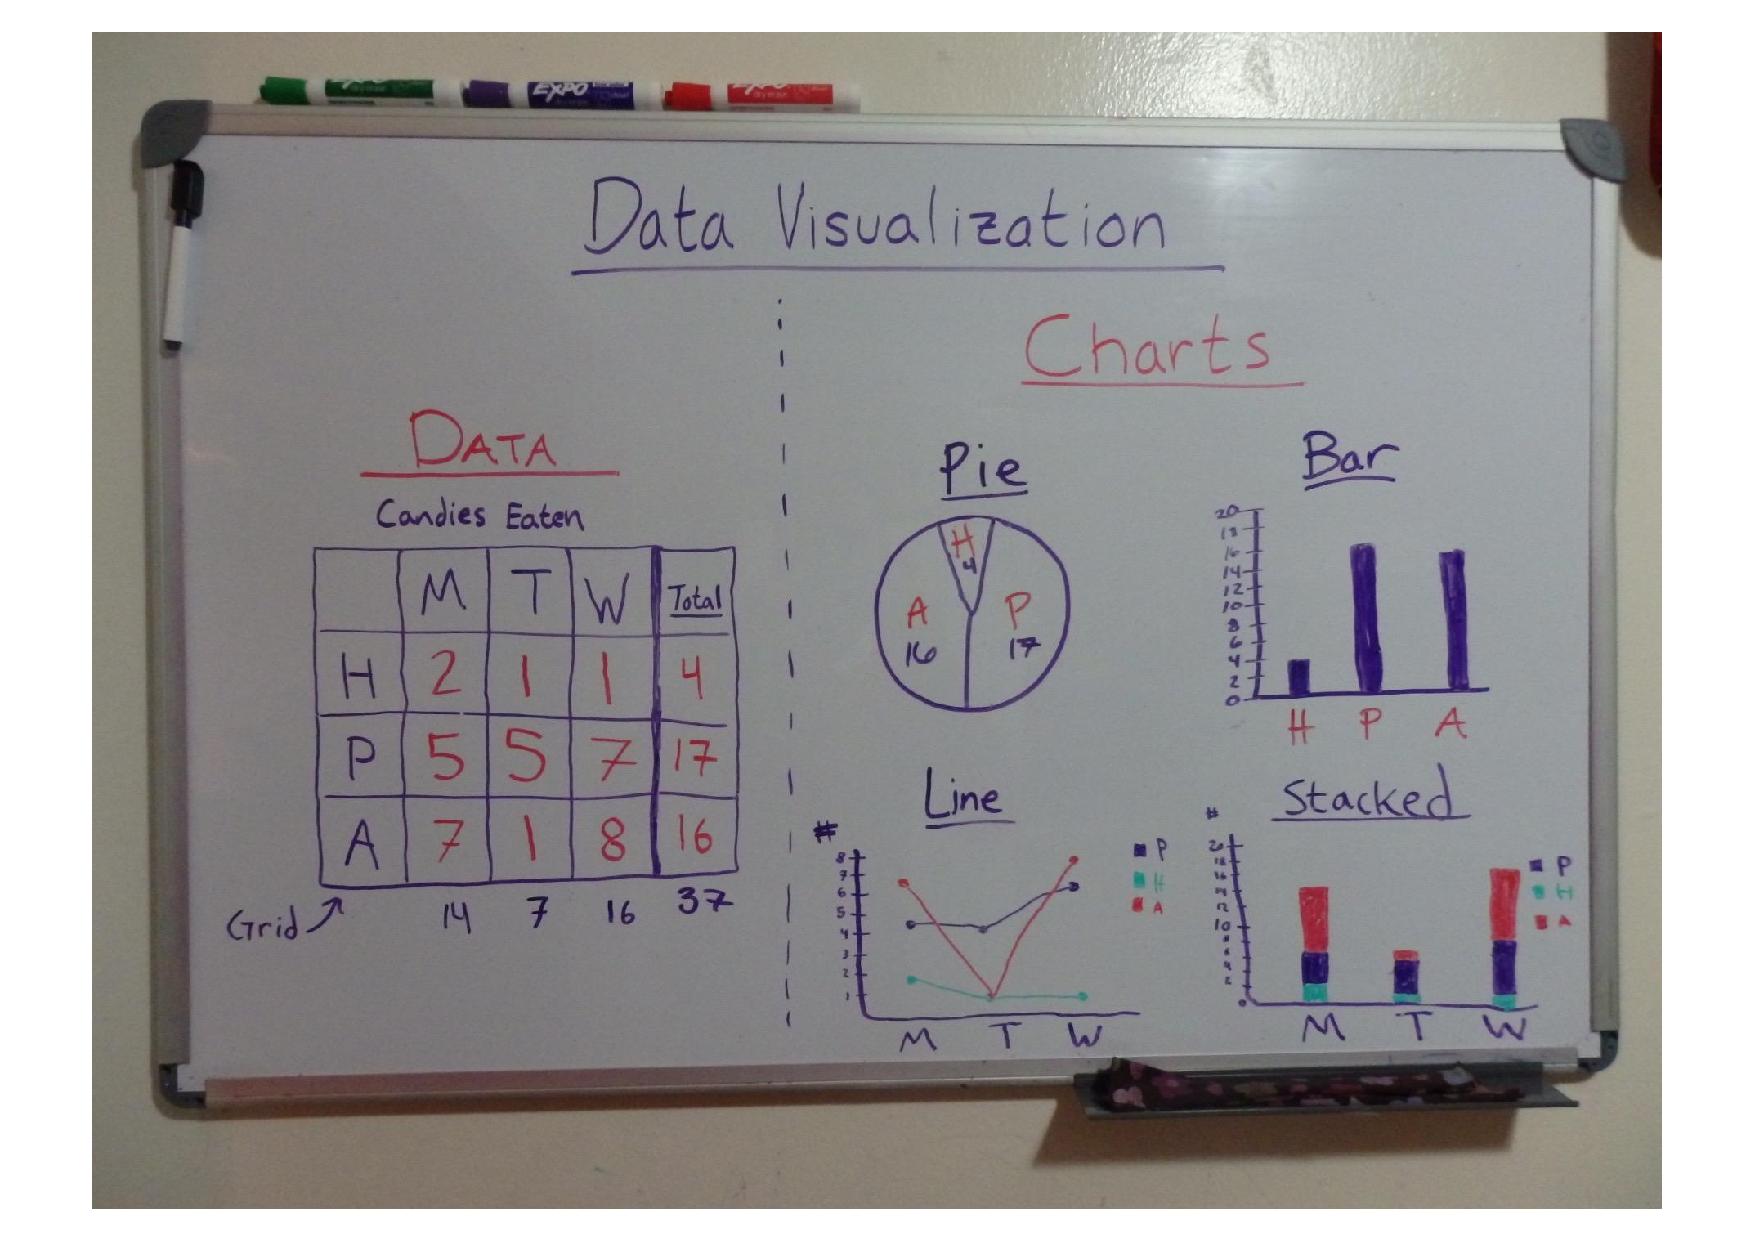 EXPO
EXPO
EXPO
Data Visualization
Charts
DATA
Candies Eaten
M T W Total
H 2 1 1 4
P 5 5 7 17
A 7 1 8 16
14 7 16 37
Grid
Pie
H
4
A P
16 17
Bar
20
18
16
14
12
10
8
6
4
2
0
H P A
Line
#
8
7
6
5
4
3
2
1
M T W
P
H
A
Stacked
#
20
18
16
14
12
10
8
6
4
2
0
M T W
P
H
A